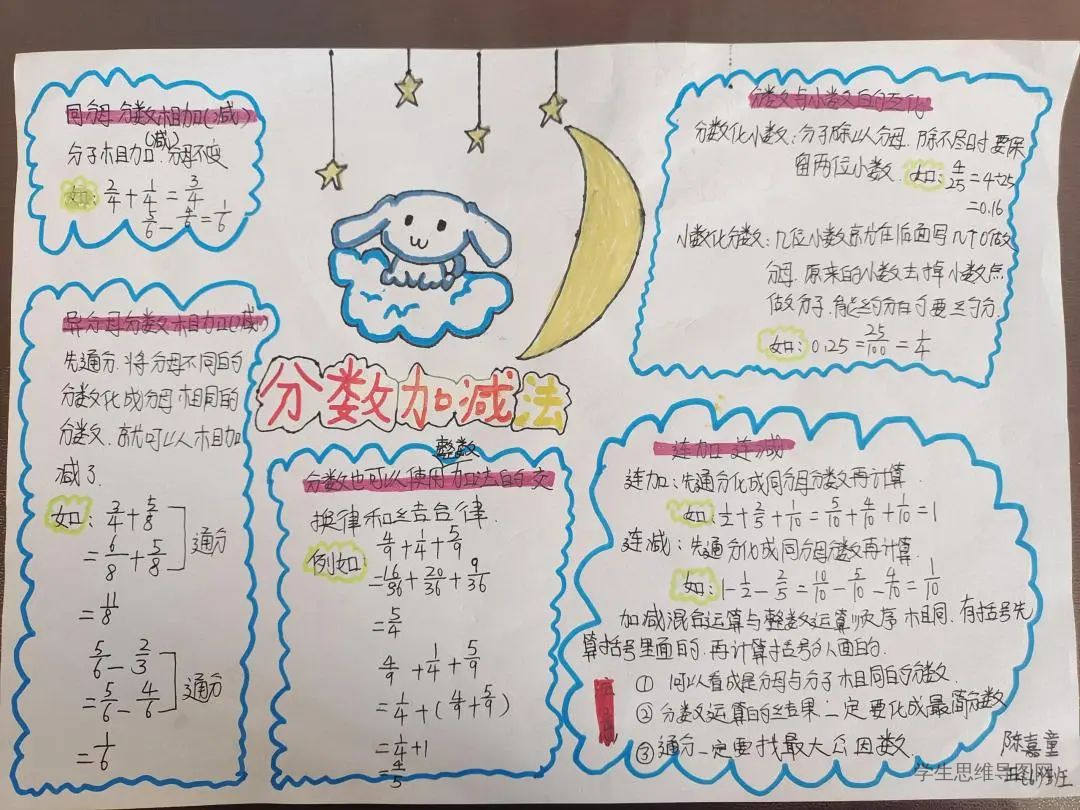 同分母分数相加(减)
(减)
分子相加.分母不变
如: 2/4 + 1/4 = 3/4
5/6 - 4/6 = 1/6
异分母分数相加(减)
先通分.将分母不同的
分数化成分母相同的
分数.就可以相加
减了.
如: 3/4 + 5/8
= 6/8 + 5/8
通分
= 11/8
5/6 - 2/3
= 5/6 - 4/6
通分
= 1/6
分数加减法
整数
分数也可以使用加法的交
换律和结合律.
例如: 4/9 + 1/4 + 5/9
= 16/36 + 20/36 + 9/36
= 5/4
4/9 + 1/4 + 5/9
= 1/4 + (4/9 + 5/9)
= 1/4 + 1
= 4/5
分数与小数的互化
分数化小数:分子除以分母.除不尽时要保
留两位小数. 如: 4/25 = 4÷25
=0.16
小数化分数:几位小数就在后面写几个0做
分母.原来的小数去掉小数点
做分子.能约分的要约分.
如: 0.25 = 25/100 = 1/4
连加 连减
连加:先通分化成同分母分数再计算.
如: 1/2 + 2/5 + 1/10 = 5/10 + 4/10 + 1/10 = 1
连减:先通分化成同分母分数再计算.
如: 1 - 1/2 - 2/5 = 10/10 - 5/10 - 4/10 = 1/10
加减混合运算与整数运算顺序相同.有括号先
算括号里面的.再计算括号外面的.
① 1可以看成是分母与分子相同的分数.
② 分数运算的结果一定要化成最简分数
③ 通分一定要找最大公因数.
陈嘉童
学生思维导图网